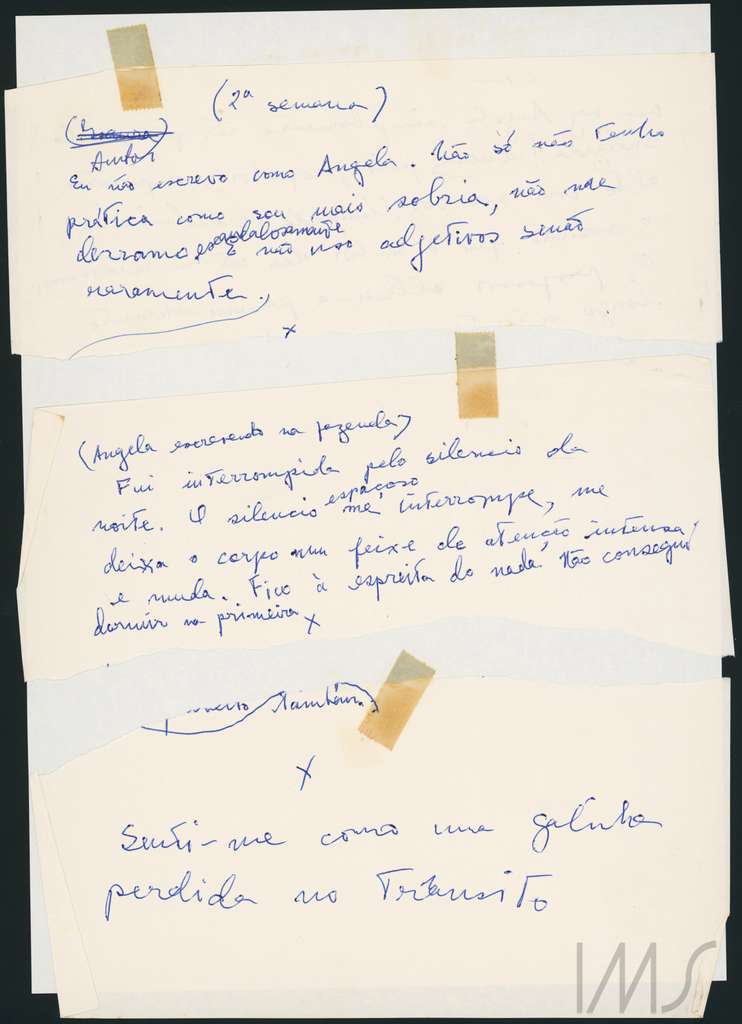 (2ª semana)
Autor
Eu não escrevo como Angela. Não só não tenho
prática como sou mais sobria, não me
derramo escandalosamente
E não uso adjetivos senão
raramente.
x
(Angela escrevendo na fazenda)
Fui interrompida pelo silencio da
noite. O silencio espaçoso me interrompe, me
deixa o corpo num feixe de atenção intensa
e muda. Fico à espreita do nada. Não consegui
dormir na primeira x
também.
x
Senti-me como uma galinha
perdida no Trânsito
IMS